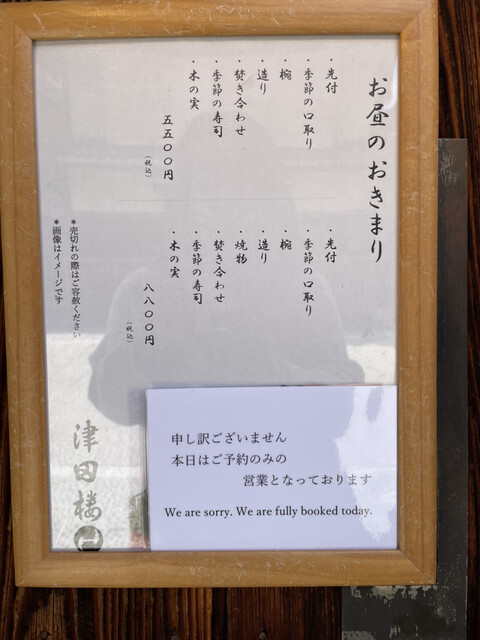 お昼のおきまり
・先付
・季節の口取り
・椀
・造り
・焚き合わせ
・季節の寿司
・木の実
五五〇〇円
（税込）
・先付
・季節の口取り
・椀
・造り
・焼物
・焚き合わせ
・季節の寿司
・木の実
八八〇〇円
（税込）
＊売切れの際はご容赦ください
＊画像はイメージです
津田楼
申し訳ございません
本日はご予約のみの
営業となっております
We are sorry. We are fully booked today.